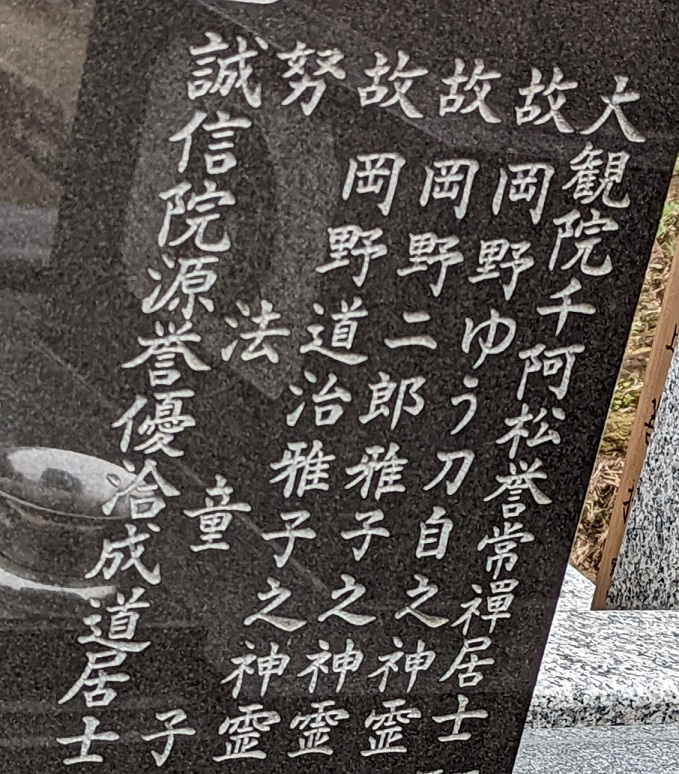 大観院千阿松誉常禪居士
故岡野ゆう刀自之神霊
故岡野二郎雅子之神霊
故岡野道治雅子之神霊
努法童子
誠信院源誉優洽成道居士